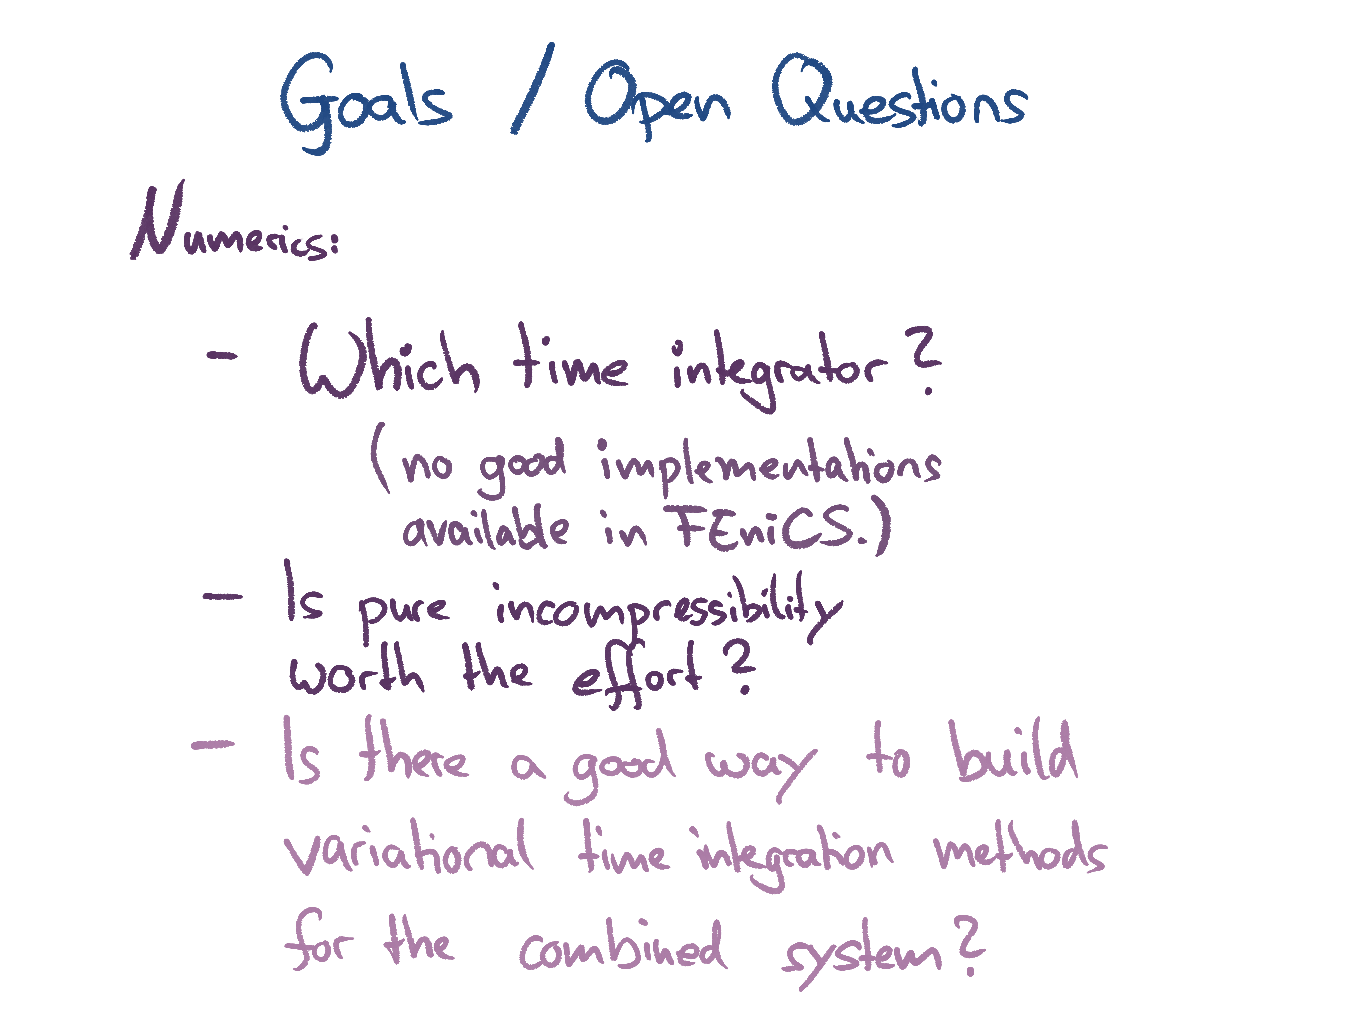 Goals / Open Questions
Numerics:
- Which time integrator?
(no good implementations
available in FEniCS.)
- Is pure incompressibility
worth the effort?
- Is there a good way to build
variational time integration methods
for the combined system?